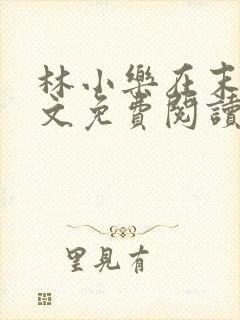 林小樂在末
文免費閱讀
里見有